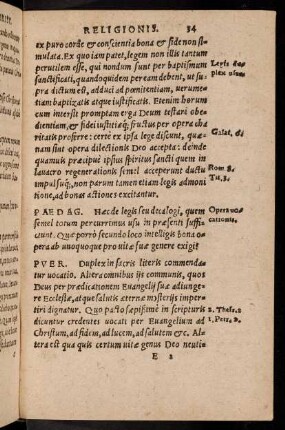 RELIGIONIS. 34
ex puro corde & conscientia bona & fide non si-
mulata. Ex quo iam patet, legem non illis tantum
perutilem esse, qui nondum sunt per baptismum
sanctificati, quandoquidem peream debent, ut su-
pra dictum est, adduci ad pœnitentiam, verumet-
iam baptizatis atque iustificatis. Etenim horum
cum intersit promptam erga Deum testari obe-
dientiam, & fidei iustitiæq; fructus per opera cha-
ritatis proferre: certe ex ipsa lege discunt, quæ-
nam sunt opera dilectionis Deo accepta: deinde
quamuis præcipue ipsius spiritus sancti quem in
lauacro regenerationis semel acceperunt ductu
impulsuq;, non parum tamen etiam legis admoni
tione, ad bonas actiones excitantur.
Legis du-
plex usus.
Galat. 6.
Rom. 8.
Tit. 3.
PAEDAG. Hac de legis seu decalogi, quem
semel totum percurrimus usu in præsenti suffi-
ciunt. Quæ porrò secundo loco intelligis bona o-
pera ab unoquoque pro uitæ suæ genere exigi?
Opera uo-
cationis.
PVER. Duplex in sacris literis commenda-
tur uocatio. Altera omnibus ijs communis, quos
Deus per prædicationem Euangelij suæ adiunge-
re Ecclesiæ, atque salutis æternæ mysterijs imper-
tiri dignatur. Quo pacto sæpissime in scripturis
dicuntur credentes uocati per Euangelium ad
Christum, ad fidem, ad lucem, ad salutem &c. Al-
tera est qua quis certum uitæ genus Deo neuti-
2. Thess. 2.
1. Pet. 2.
E 2